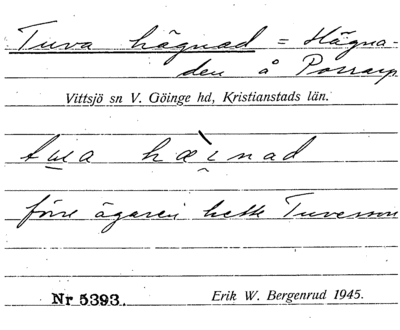 Tuva hägnad = Hägna-
den å Porrarp
Vittsjö sn V. Göinge hd, Kristianstads län.
tɯa hæ̀i̯nad
förre ägaren hette Tuvesson
Nr 5393. Erik W. Bergenrud 1945.